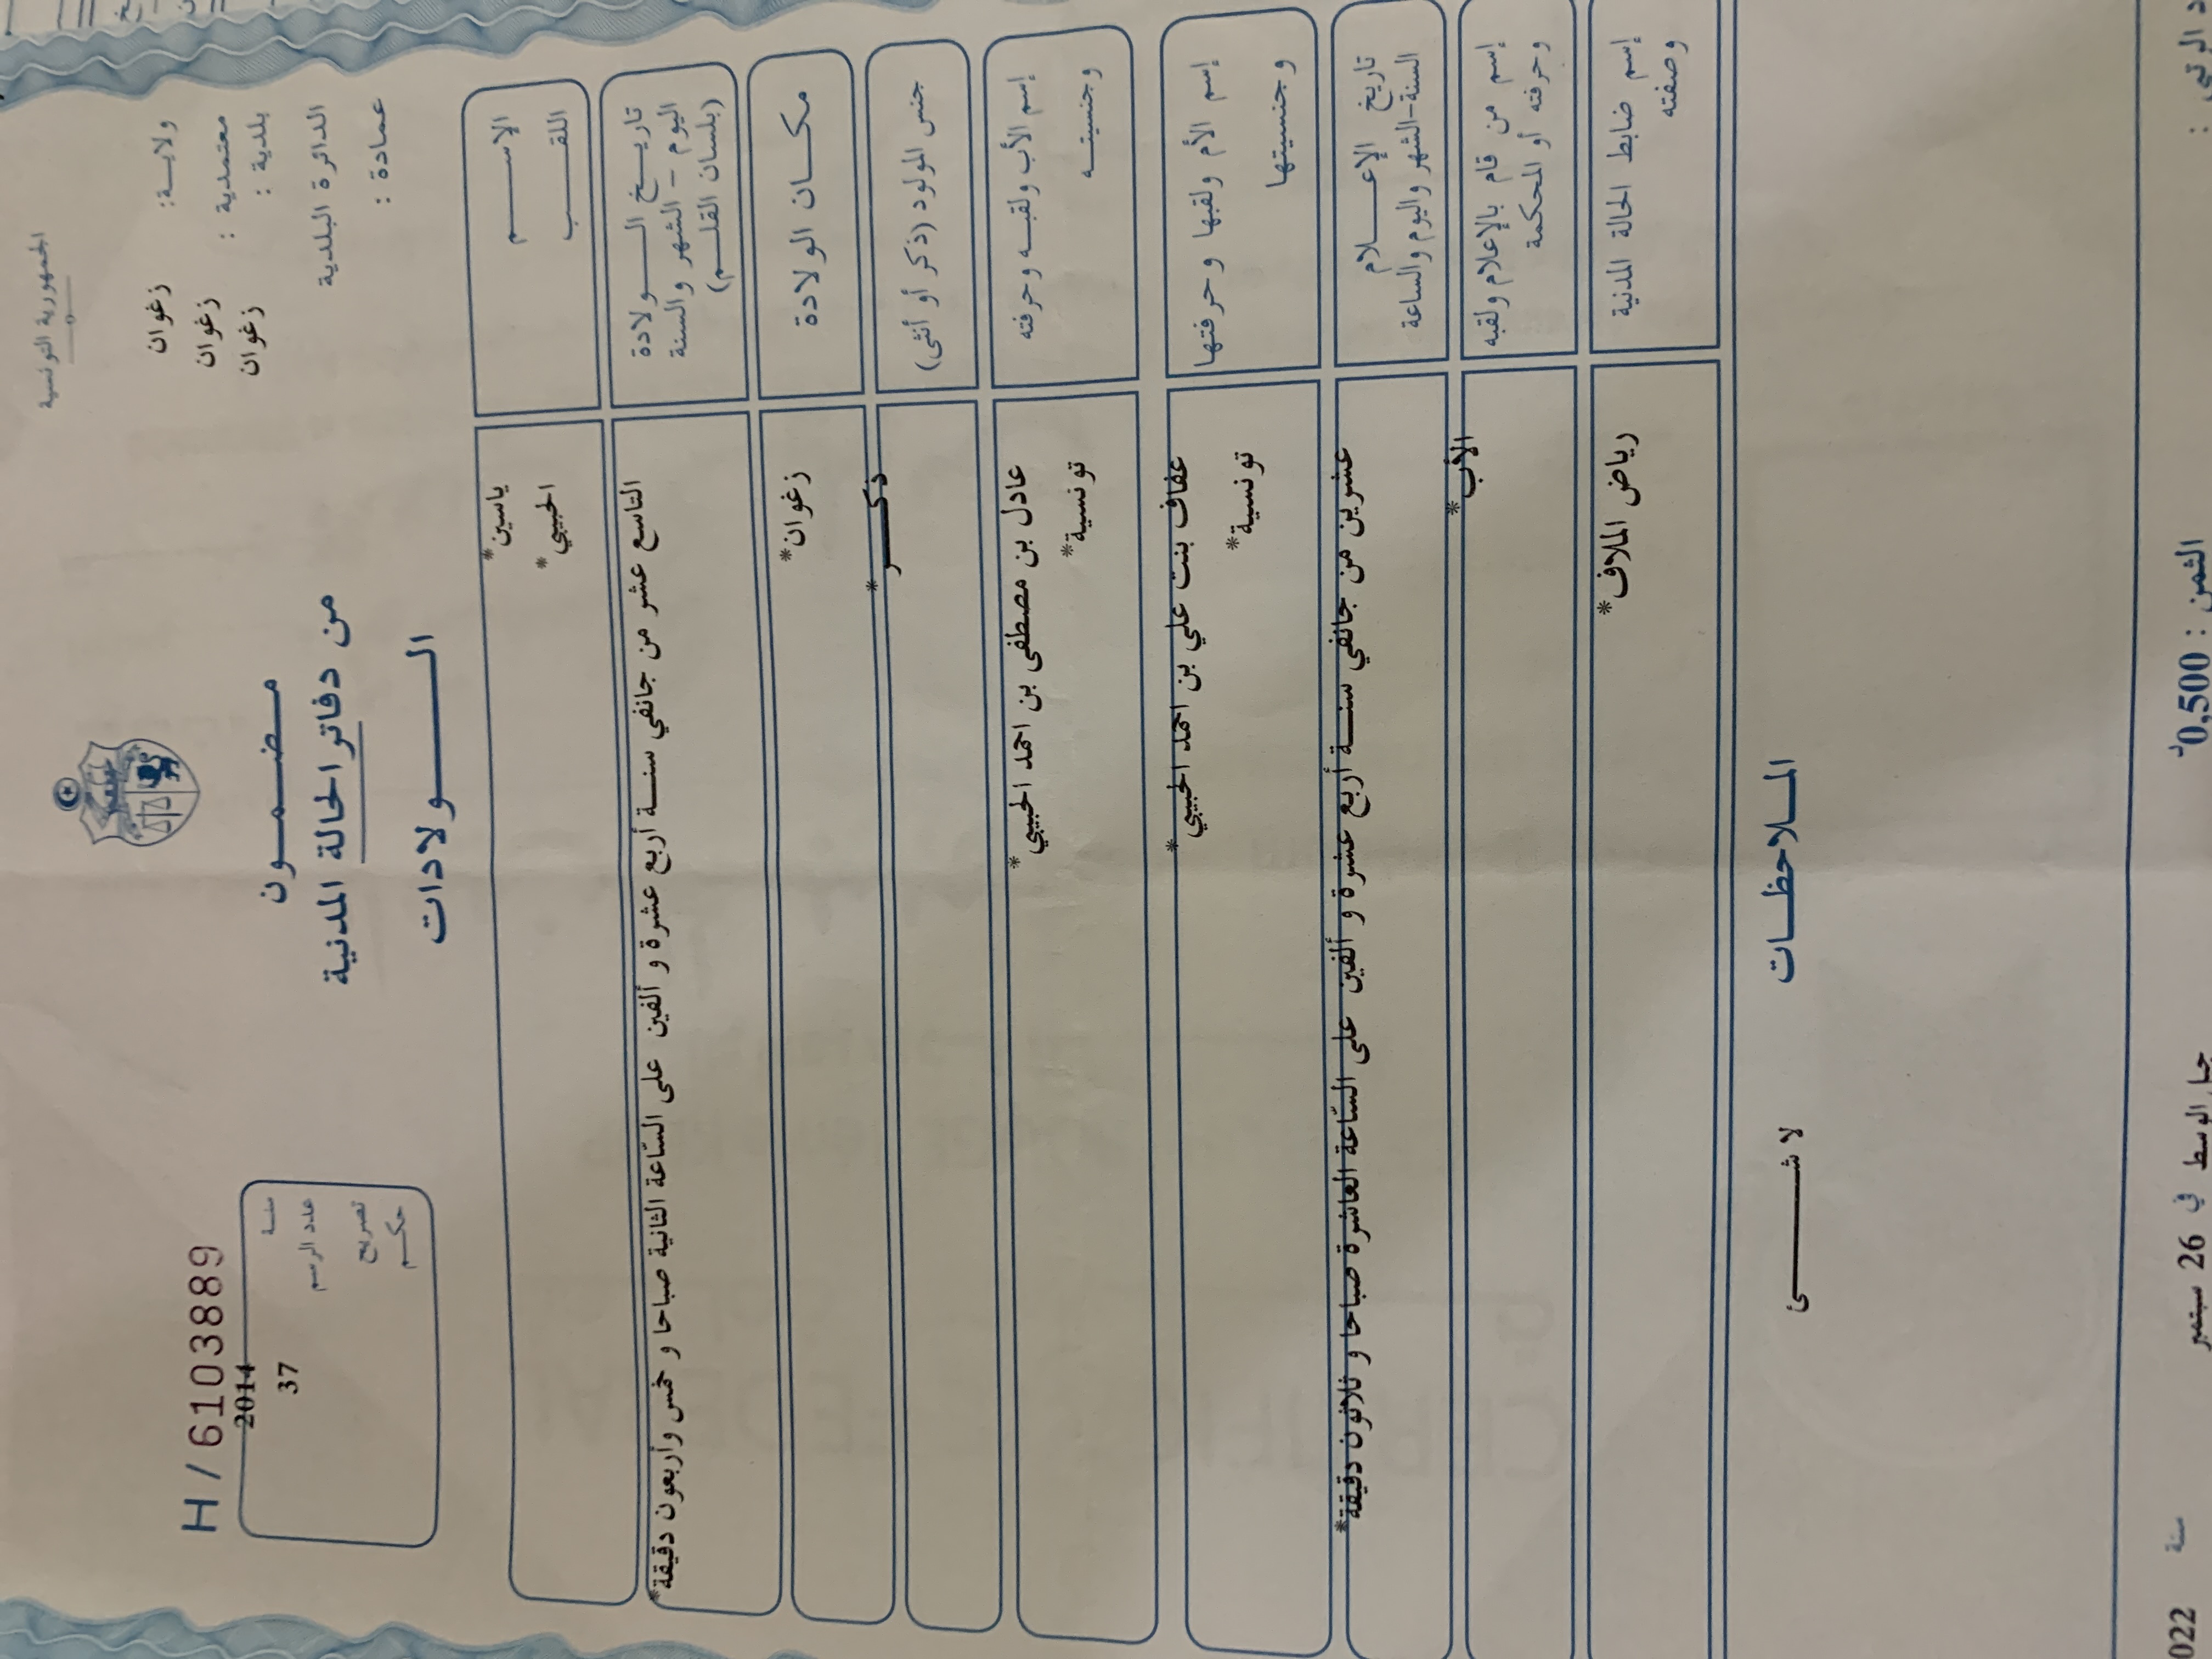 الجمهورية التونسية
ولايـــة: زغوان
معتمدية : زغوان
بلدية : زغوان
الدائرة البلدية
عمادة :
H / 6103889
سنــة 2014
عدد الرسم 37
تصريح
حكــم
مـضــمــــون
من دفاتر الحالة المدنية
الــــــــولادات
الإســـــــم ياسين*
اللقـــــب الحبيبي*
تاريـــخ الـــــولادة
اليوم – الشهر والسنة
(بلسان القلــم)
التاسع عشر من جانفي سنـــة أربع عشرة و ألفين على السّاعة الثانية صباحا و خمس وأربعون دقيقة*
مكــان الولادة زغوان*
جنس المولود (ذكر أو أنثى) ذكـــــر*
إسم الأب ولقبـه وحرفته عادل بن مصطفى بن احمد الحبيبي*
وجنسيتــه تونسية*
إسم الأم ولقبها وحرفتها عفاف بنت علي بن احمد الحبيبي*
وجنسيتها تونسية*
تاريخ الإعــــلام
السنة-الشهر واليوم والساعة
عشرين من جانفي سنـــة أربع عشرة و ألفين على السّاعة العاشرة صباحا و ثلاثون دقيقة*
إسم من قام بالإعلام ولقبه الأب*
وحرفته أو المحكمة
إسم ضابط الحالة المدنية رياض الملاف*
وصفته
المــلاحظــات
لا شـــــــئ
الثمن : 0,500د
الوسط في 26 سبتمبر
سنة 022